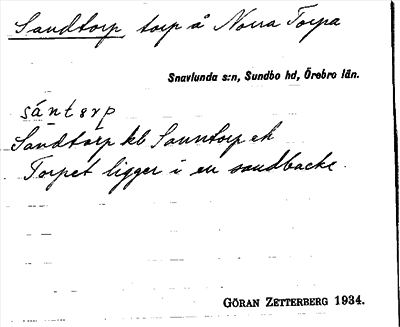 Sandtorp, torp å Norra Torpa
Snavlunda s:n, Sundbo hd, Örebro län.
sántərp
Sandtorp kb Sanntorp ek
Torpet ligger i en sandbacke.
GÖRAN ZETTERBERG 1934.